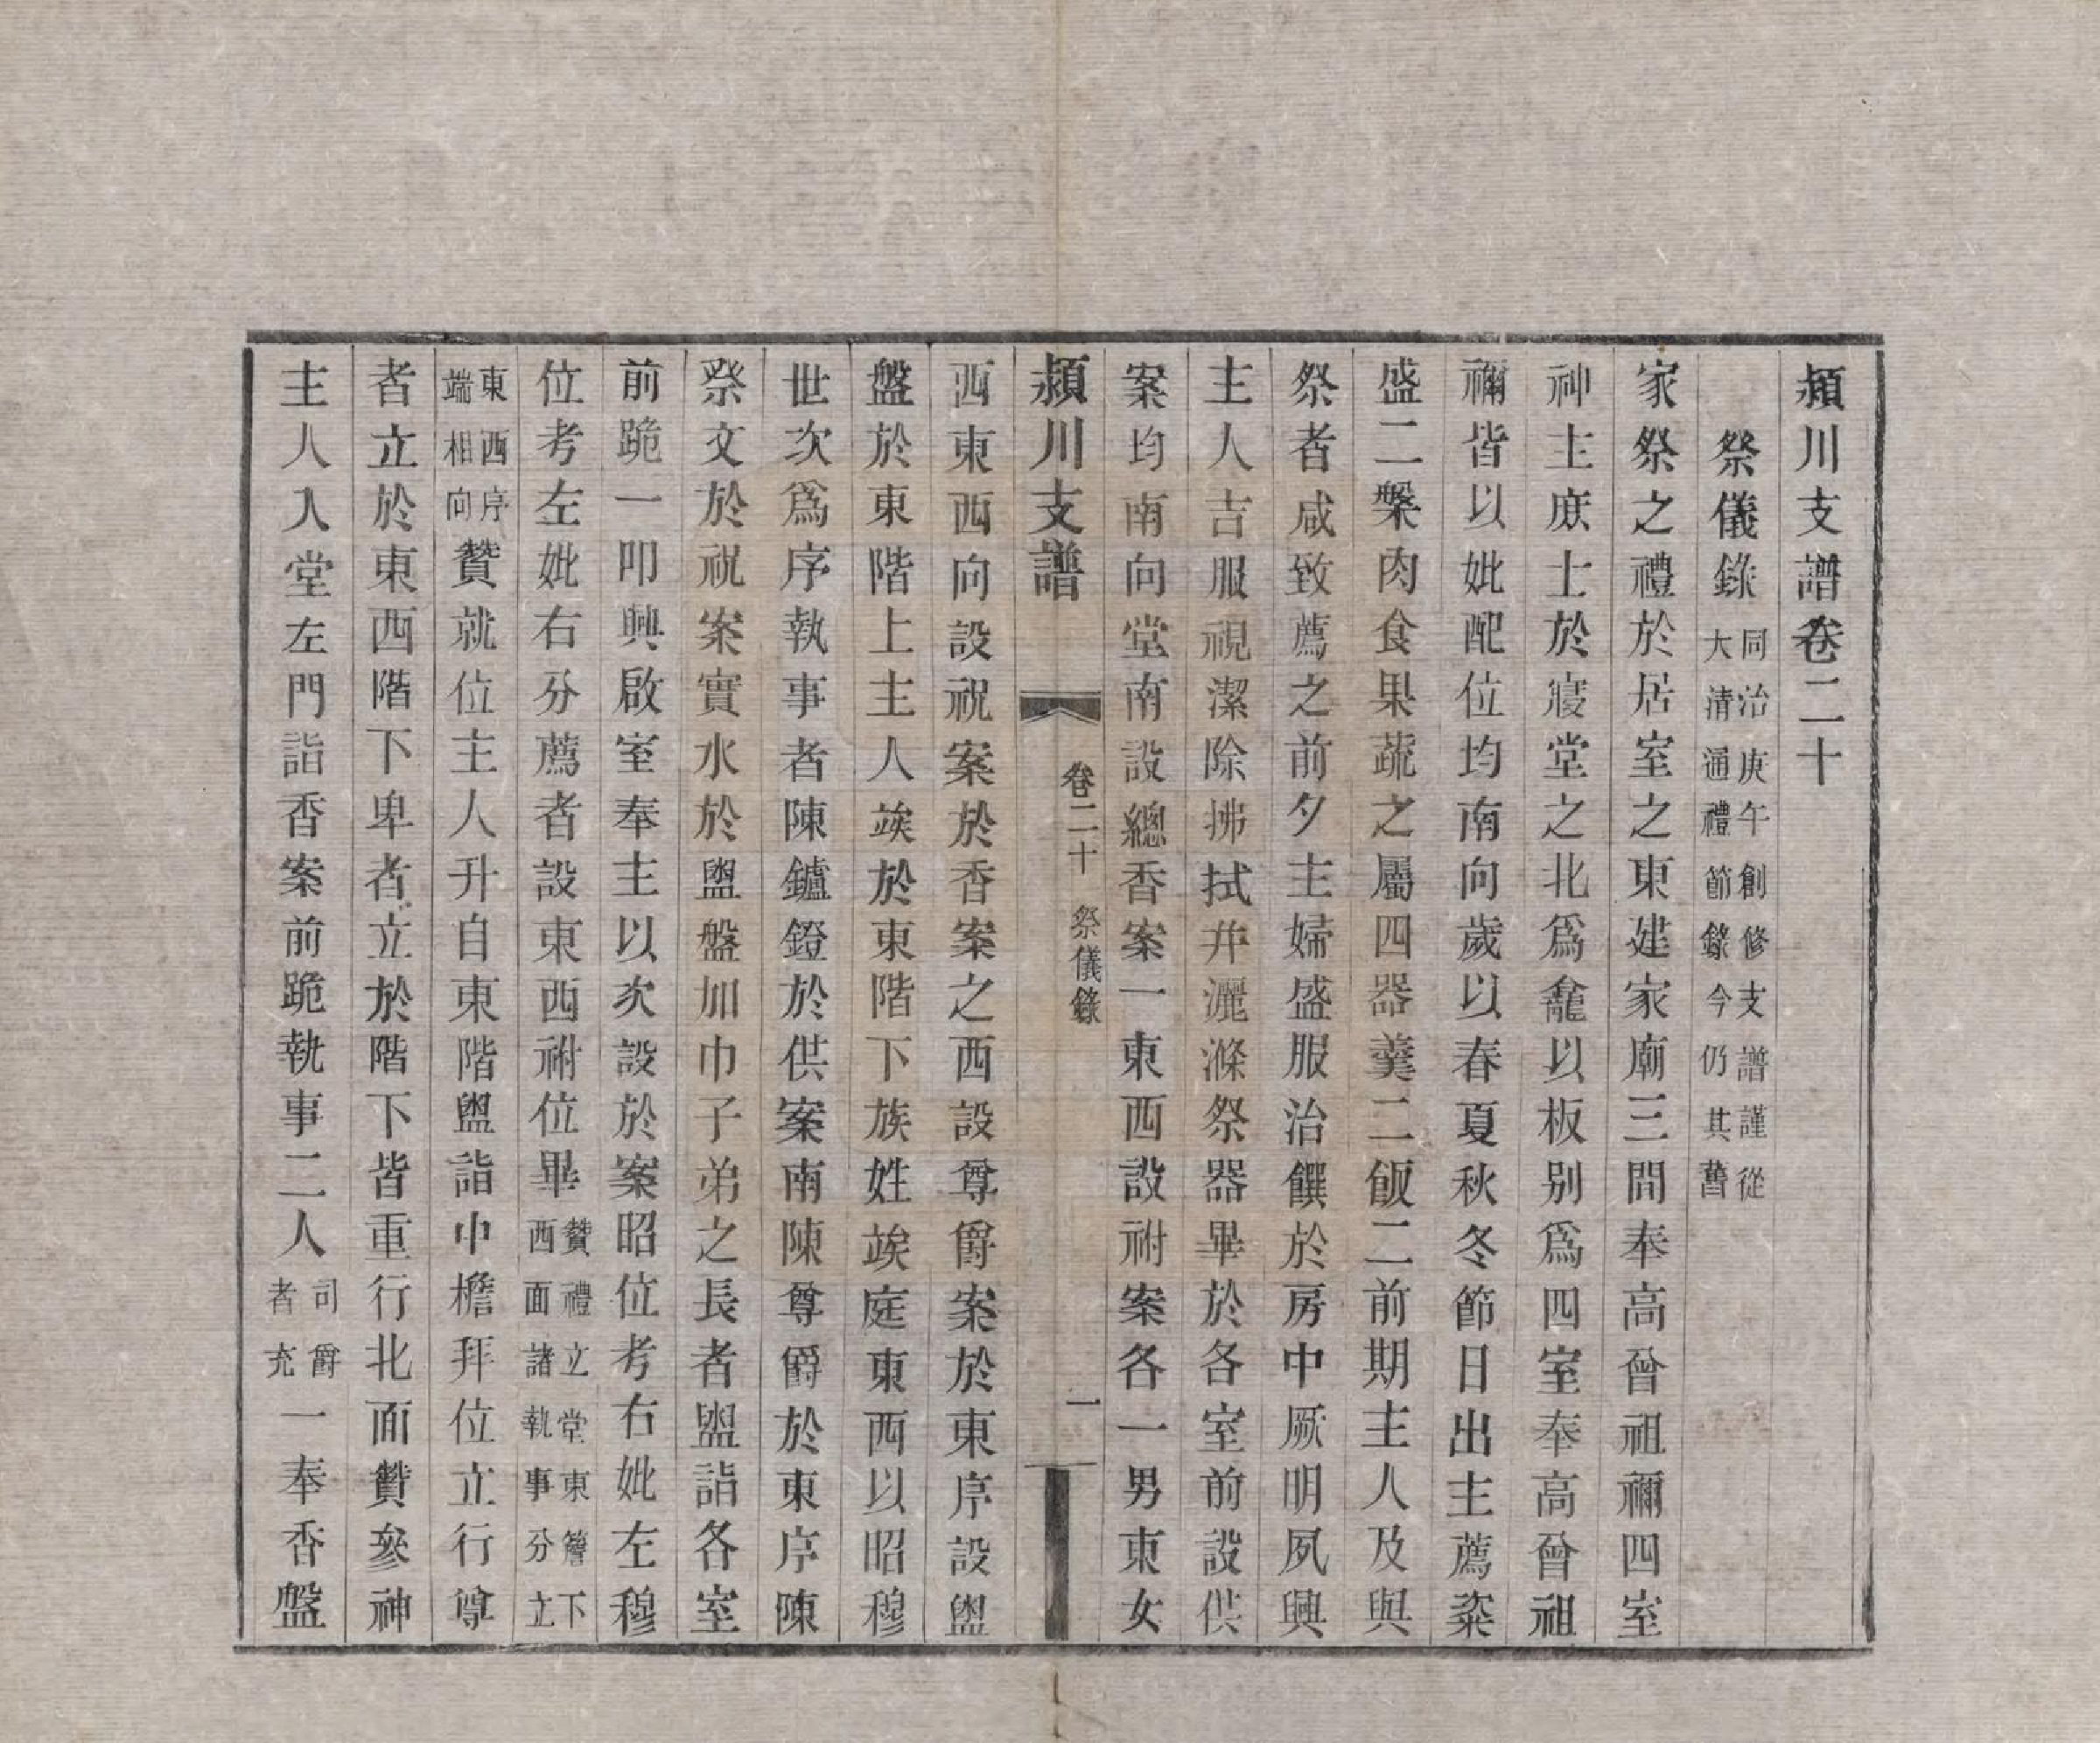 潁川支譜卷二十
祭儀錄 同治庚午創修支譜謹從
大清通禮節錄今仍其舊
家祭之禮於居室之東建家廟三間奉高曾祖禰四室
神主庶士於寢堂之北爲龕以板别爲四室奉高曾祖
禰皆以妣配位均南向歲以春夏秋冬節日出主薦粢
盛二槃肉食果蔬之屬四器羹二飯二前期主人及與
祭者咸致薦之前夕主婦盛服治饌於房中厥明夙興
主人吉服視潔除拂拭幷灑滌祭器畢於各室前設供
案均南向堂南設總香案一東西設祔案各一男東女
潁川支譜 卷二十 祭儀錄 一
西東西向設祝案於香案之西設尊爵案於東序設盥
盤於東階上主人竢於東階下族姓竢庭東西以昭穆
世次爲序執事者陳鑪鐙於供案南陳尊爵於東序陳
祭文於祝案實水於盥盤加巾子弟之長者盥詣各室
前跪一叩興啟室奉主以次設於案昭位考右妣左穆
位考左妣右分薦者設東西祔位畢 贊禮立堂東簷下
西面諸執事分立
東西序
端相向 贊就位主人升自東階盥詣巾檐拜位立行尊
者立於東西階下卑者立於階下皆重行北面贊參神
主人入堂左門詣香案前跪執事二人 司爵
者充 一奉香盤